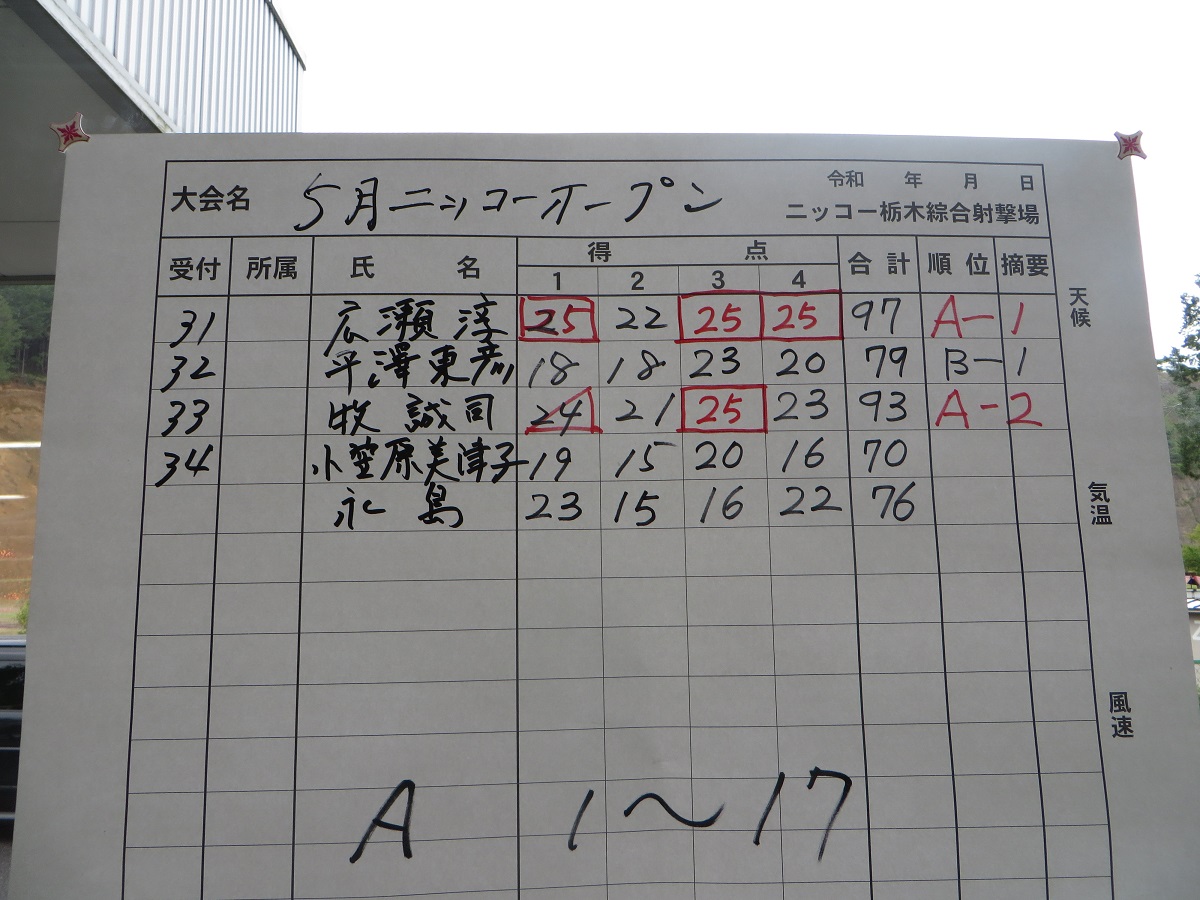 大会名 5月ニッコーオープン 令和 年 月 日
ニッコー栃木綜合射撃場
受付 所属 氏 名 得 点 合計 順位 摘要
1 2 3 4
31 広瀬 淳 25 22 25 25 97 A-1
32 平澤東彦 18 18 23 20 79 B-1
33 牧 誠司 24 21 25 23 93 A-2
34 小笠原美津子 19 15 20 16 70
永島 23 15 16 22 76
天候
気温
風速
A 1〜17